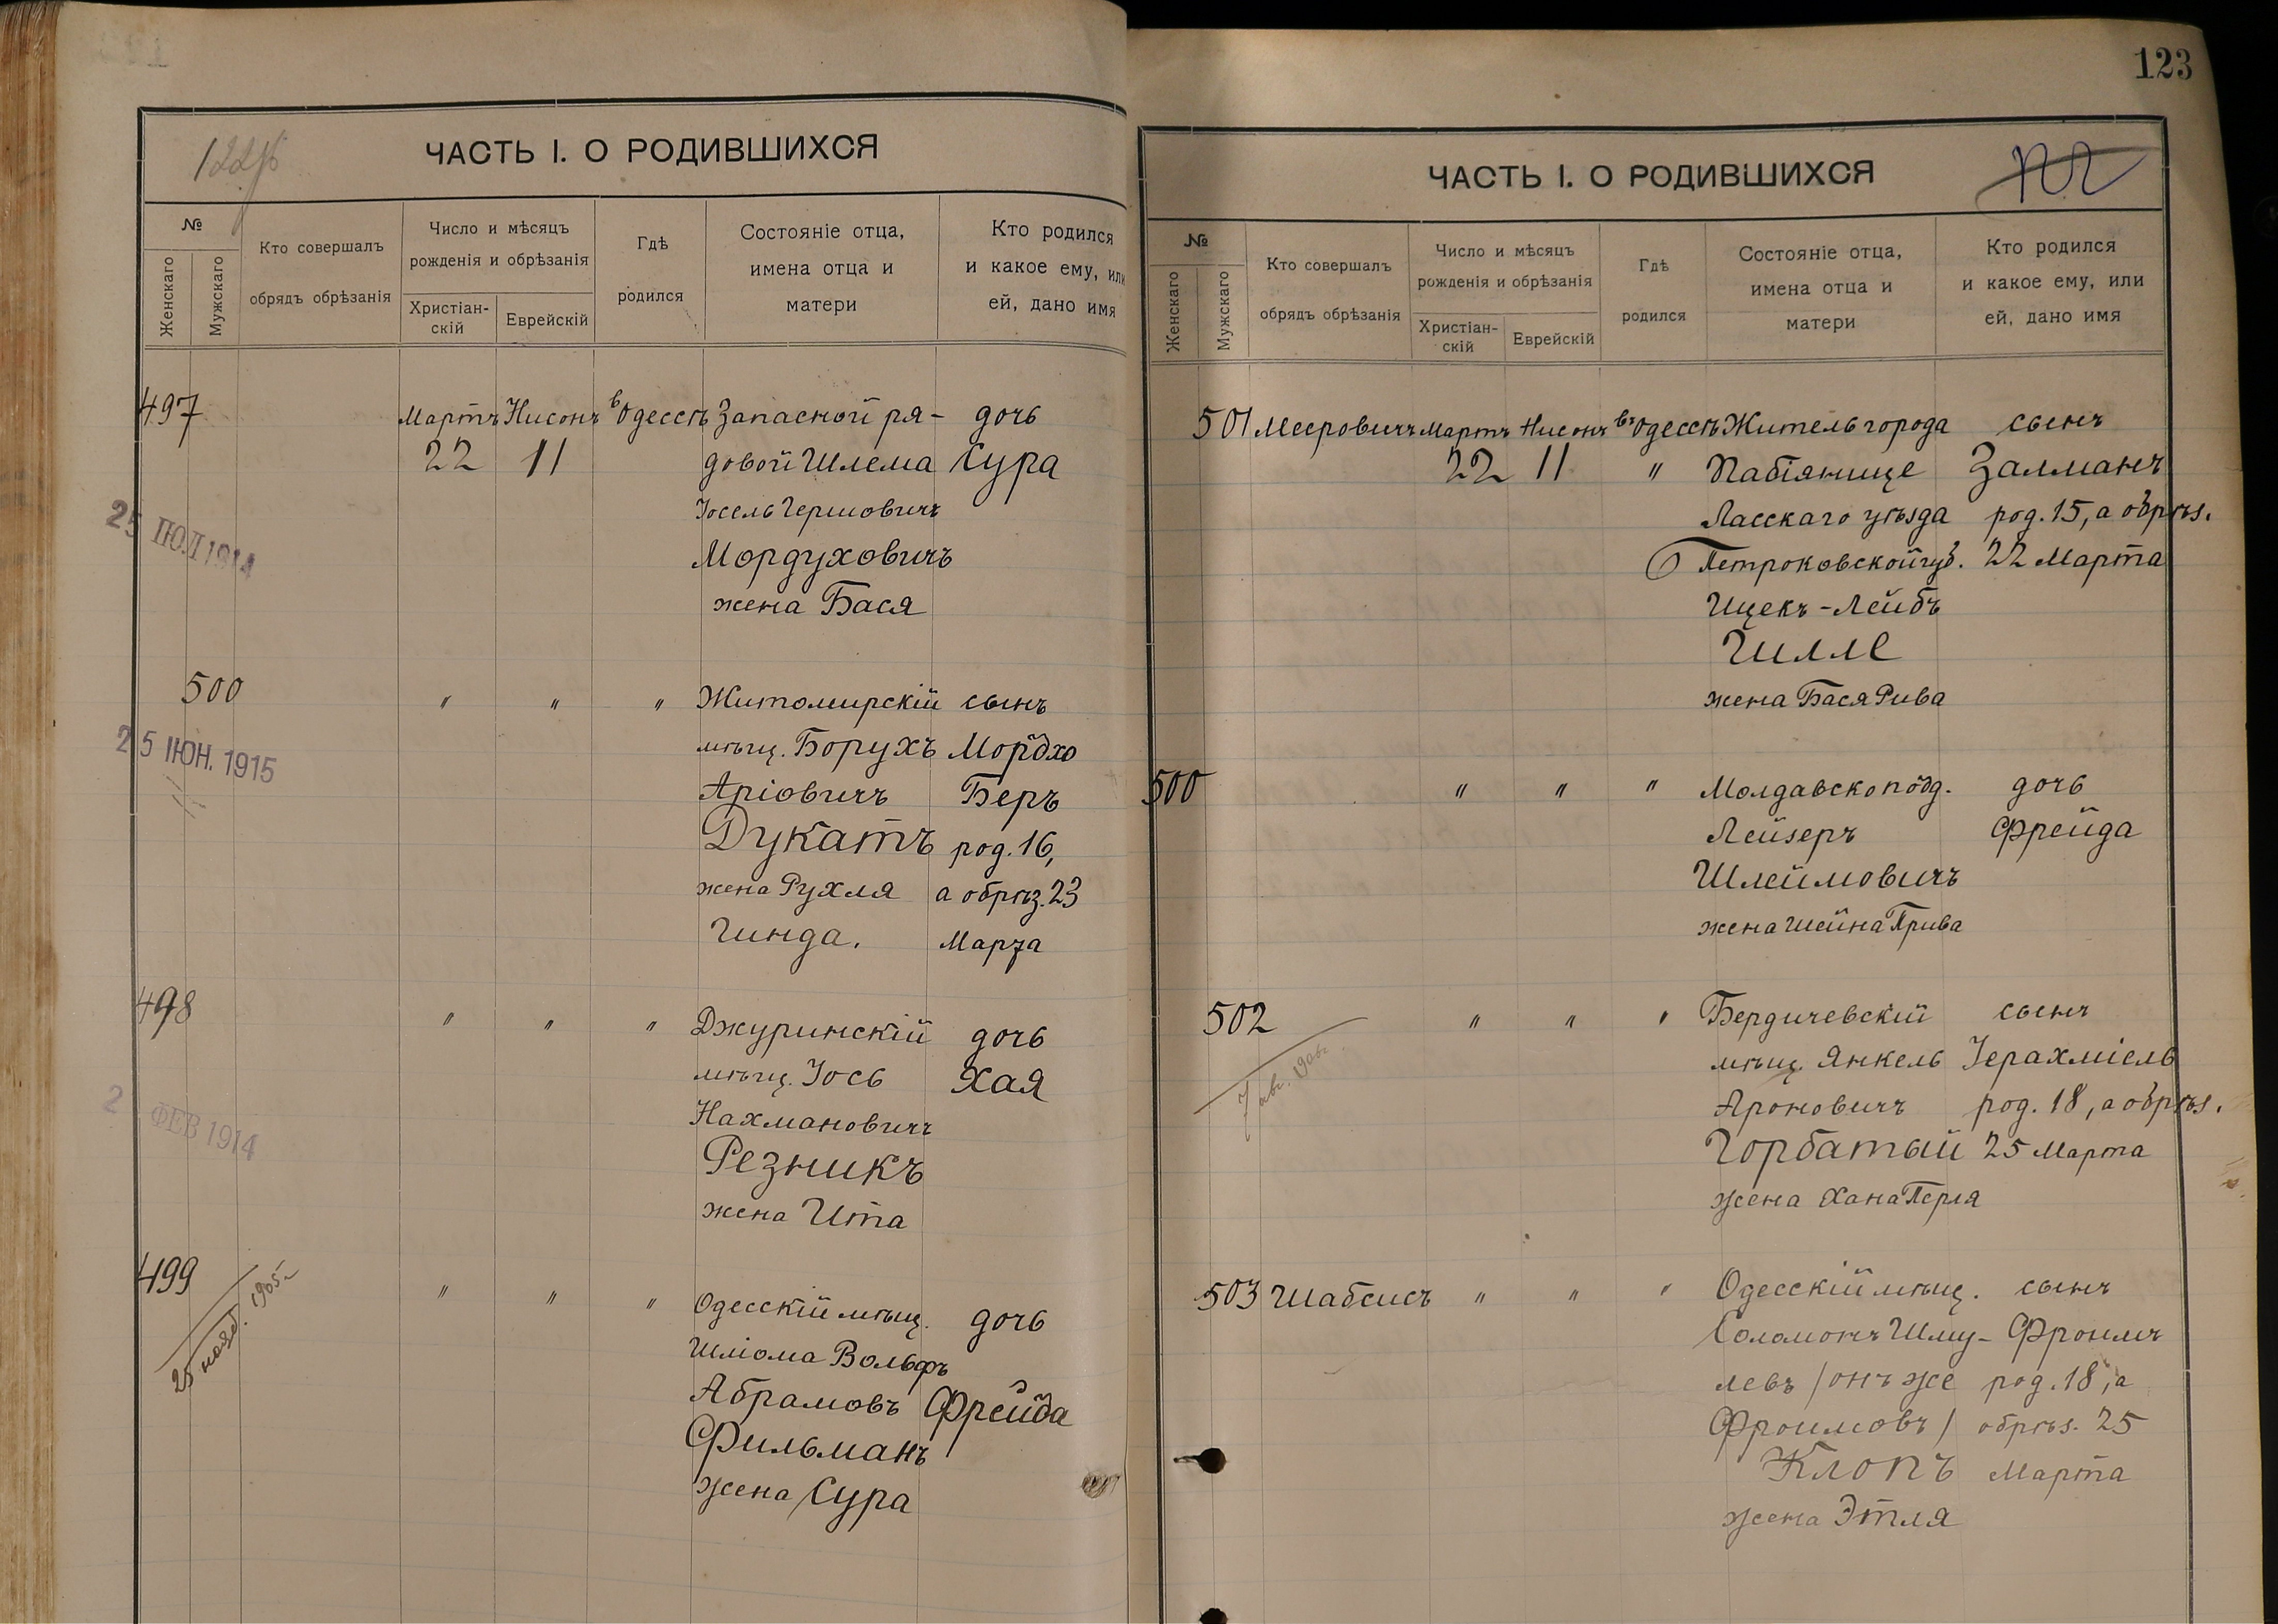 ЧАСТЬ I. О РОДИВШИХСЯ
№
Женскаго
Мужскаго
Кто совершалъ
обрядъ обрѣзанія
Число и мѣсяцъ
рожденія и обрѣзанія
Христіан-
скій
Еврейскій
Гдѣ
родился
Состояніе отца,
имена отца и
матери
Кто родился
и какое ему, или
ей, дано имя
497 Мартъ Нисонъ в Одессѣ Запасной ря- дочь
22 11 довой Шлема Сура
Іосель Гершовичъ
25 ІЮЛ 1914
Мордуховичъ
жена Бася
500 " " " Житомирскій сынъ
мѣщ. Борухъ Мордхо
25 ІЮН. 1915
Аріовичъ Беръ
Дукатъ род. 16,
жена Рухля а обрѣз. 23
Гинда. Марта
498 " " " Джуринскій дочь
мѣщ. Іось Хая
2 ФЕВ 1914
Нахмановичъ
Резникъ
жена Ита
499 " " " Одесскій мѣщ. дочь
25 нояб. 1905 г.
Шліома Вольфъ
Абрамовъ Фрейда
Фильманъ
жена Сура
123
ЧАСТЬ I. О РОДИВШИХСЯ
№
Женскаго
Мужскаго
Кто совершалъ
обрядъ обрѣзанія
Число и мѣсяцъ
рожденія и обрѣзанія
Христіан-
скій
Еврейскій
Гдѣ
родился
Состояніе отца,
имена отца и
матери
Кто родился
и какое ему, или
ей, дано имя
501 Мееровичъ Мартъ Нисонъ въ Одессѣ Житель города сынъ
22 11 " Пабіянице Залманъ
Ласскаго уѣзда род. 15, а обрѣз.
Петроковской губ. 22 Марта
Ицекъ-Лейбъ
Гилле
жена Бася Рива
500 " " " Молдавско подд. дочь
Лейзеръ Фрейда
Шлеймовичъ
жена Шейна Прива
502 " " " Бердичевскій сынъ
мѣщ. Янкель Іерахміель
Ароновичъ род. 18, а обрѣз.
Горбатый 25 Марта
жена Хана Перля
503 Шабсисъ " " " Одесскій мѣщ. сынъ
Соломонъ Шму- Фроимъ
левъ /онъ же род. 18, а
Фроимовъ/ обрѣз. 25
Клопъ Марта
жена Этля